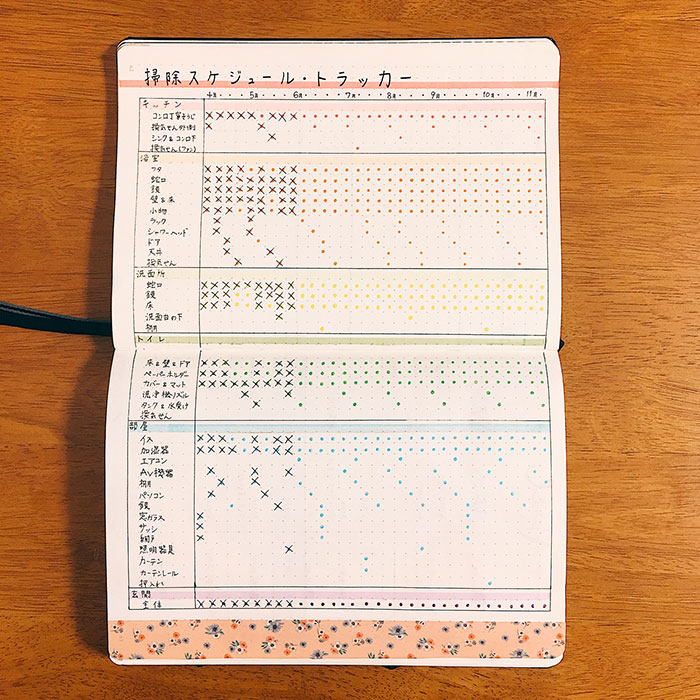 掃除スケジュール・トラッカー
4月 5月 6月 7月 8月 9月 10月 11月
キッチン
コンロ丁寧そうじ
換気せん外側
シンク&コンロ下
換気せん(ファン)
浴室
フタ
蛇口
鏡
壁&床
小物
ラック
シャワーヘッド
ドア
天井
換気せん
洗面所
蛇口
鏡
床
洗面台の下
棚
トイレ
床&壁&ドア
ペーパーホルダー
カバー&マット
洗浄機ノズル
タンク&水受け
換気せん
部屋
イス
加湿器
エアコン
AV機器
棚
パソコン
鏡
窓ガラス
サッシ
網戸
照明器具
カーテン
カーテンレール
押入れ
玄関
全体